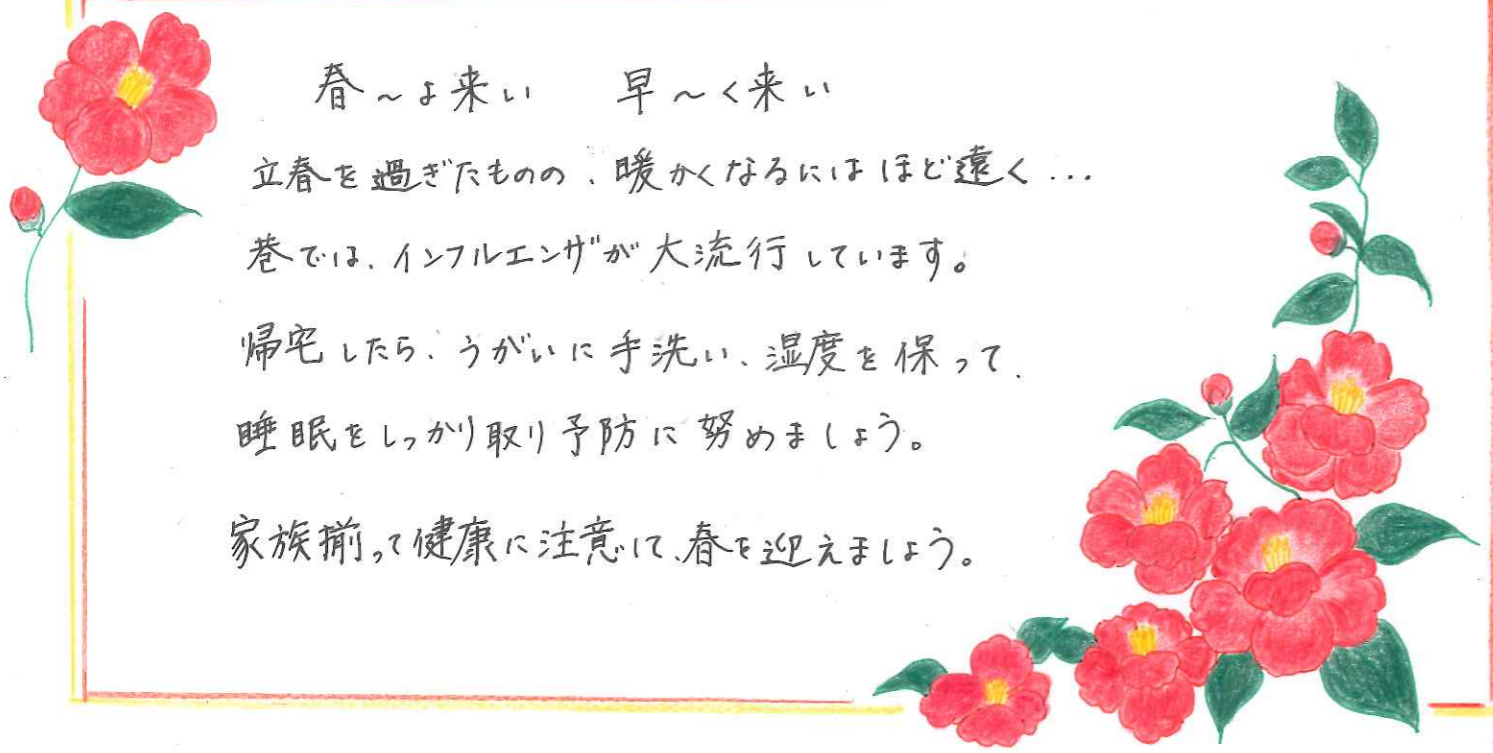 春～よ来い　早～く来い
立春を過ぎたものの、暖かくなるにはほど遠く…
巷では、インフルエンザが大流行しています。
帰宅したら、うがいに手洗い、湿度を保って、
睡眠をしっかり取り予防に努めましょう。
家族揃って健康に注意して、春を迎えましょう。